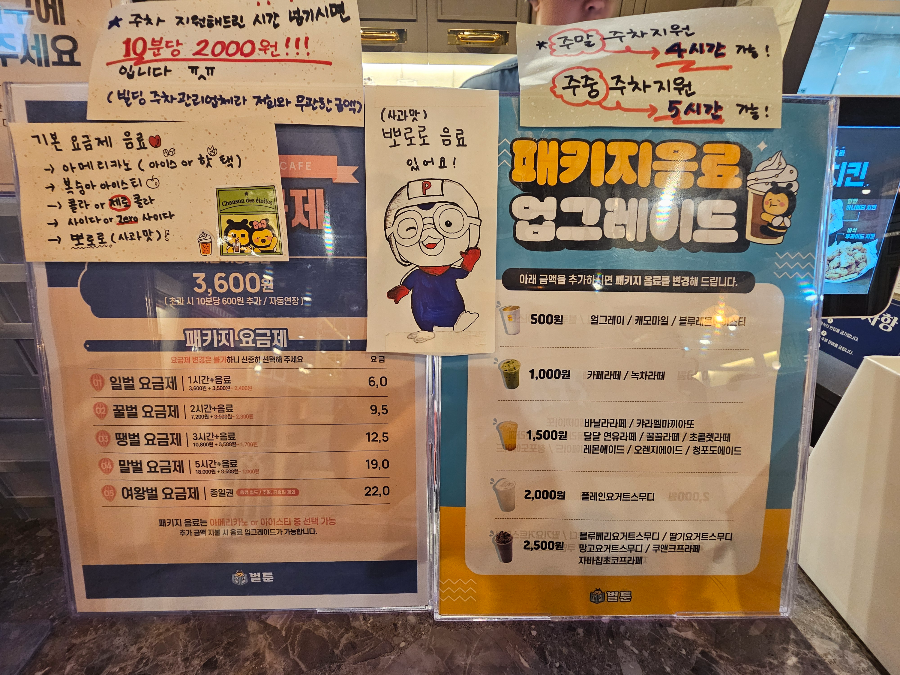 에
주세요
* 주차 지원해드린 시간 넘기시면
10분당 2000원!!!
입니다 ㅠㅅㅠ
(빌딩 주차관리업체라 저희와 무관한 금액)
기본 요금제 음료
→ 아메리카노 (아이스 or 핫 택)
→ 복숭아 아이스티
→ 콜라 or 제로 콜라
→ 사이다 or Zero 사이다
→ 뽀로로 (사과맛)
CAFE
제
3,600원
(초과 시 10분당 600원 추가 / 자동연장)
패키지 요금제
요금제 변경은 불가하니 신중히 선택해 주세요
요금
01 일벌 요금제 1시간+음료 6,0
3,600원 + 3,500원
02 꿀벌 요금제 2시간+음료 9,5
7,200원 + 3,500원
03 땡벌 요금제 3시간+음료 12,5
10,800원 + 3,500원
04 말벌 요금제 5시간+음료 19,0
18,000원 + 3,500원
05 여왕벌 요금제 종일권 22,0
패키지 음료는 아메리카노 or 아이스티 중 선택 가능
추가 금액 지불 시 음료 업그레이드가 가능합니다.
벌툰
(사과맛)
뽀로로 음료
있어요!
P
* 주말 주차지원
→ 4시간 가능!
주중 주차지원
→ 5시간 가능!
패키지음료
업그레이드
아래 금액을 추가하시면 패키지 음료를 변경해 드립니다.
500원 얼그레이 / 캐모마일 / 블루레몬
1,000원 카페라떼 / 녹차라떼
1,500원 바닐라라떼 / 카라멜마끼아또
달달 연유라떼 / 꿀꿀라떼 / 초콜렛라떼
레몬에이드 / 오렌지에이드 / 청포도에이드
2,000원 플레인요거트스무디
2,500원 블루베리요거트스무디 / 딸기요거트스무디
망고요거트스무디 / 쿠앤크프라페
자바칩초코프라페
벌툰
치킨
사항